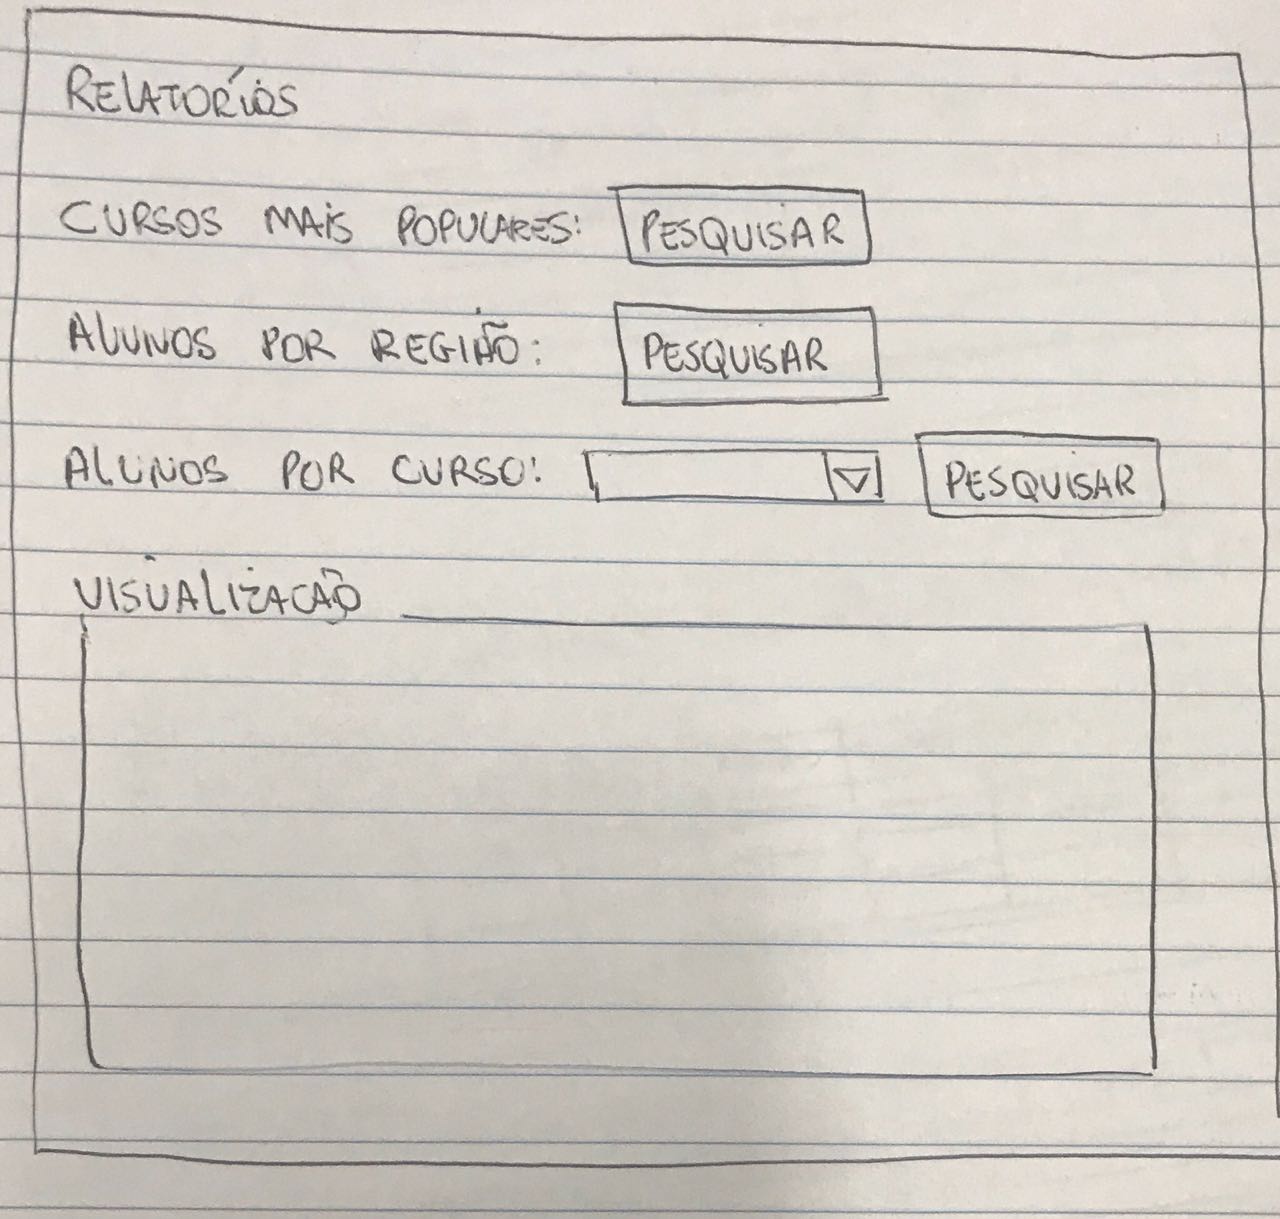 RELATORÍOS
CURSOS MAIS POPULARES: PESQUISAR
ALUNOS POR REGIÃO: PESQUISAR
ALUNOS POR CURSO: PESQUISAR
VISUALIZAÇÃO